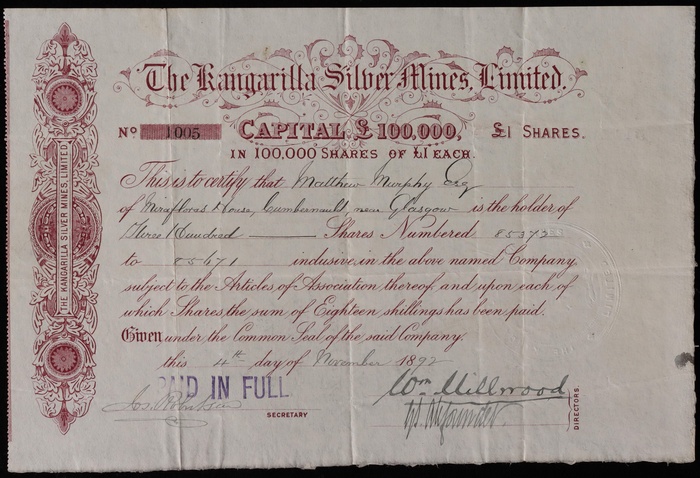 The Kangarilla Silver Mines, Limited.
No 1005 CAPITAL £100,000, £1 SHARES.
IN 100,000 SHARES OF £1 EACH.
This is to certify that Matthew Murphy Esq
of Miraflores House, Cumbernauld, near Glasgow is the holder of
Three Hundred Shares Numbered 85372
to 85671 inclusive, in the above named Company,
subject to the Articles of Association thereof, and upon each of
which Shares, the sum of Eighteen shillings has been paid.
Given under the Common Seal of the said Company.
this 4th day of November 1892
PAID IN FULL.
Wm. Millwood
SECRETARY
DIRECTORS.
THE KANGARILLA SILVER MINES, LIMITED.